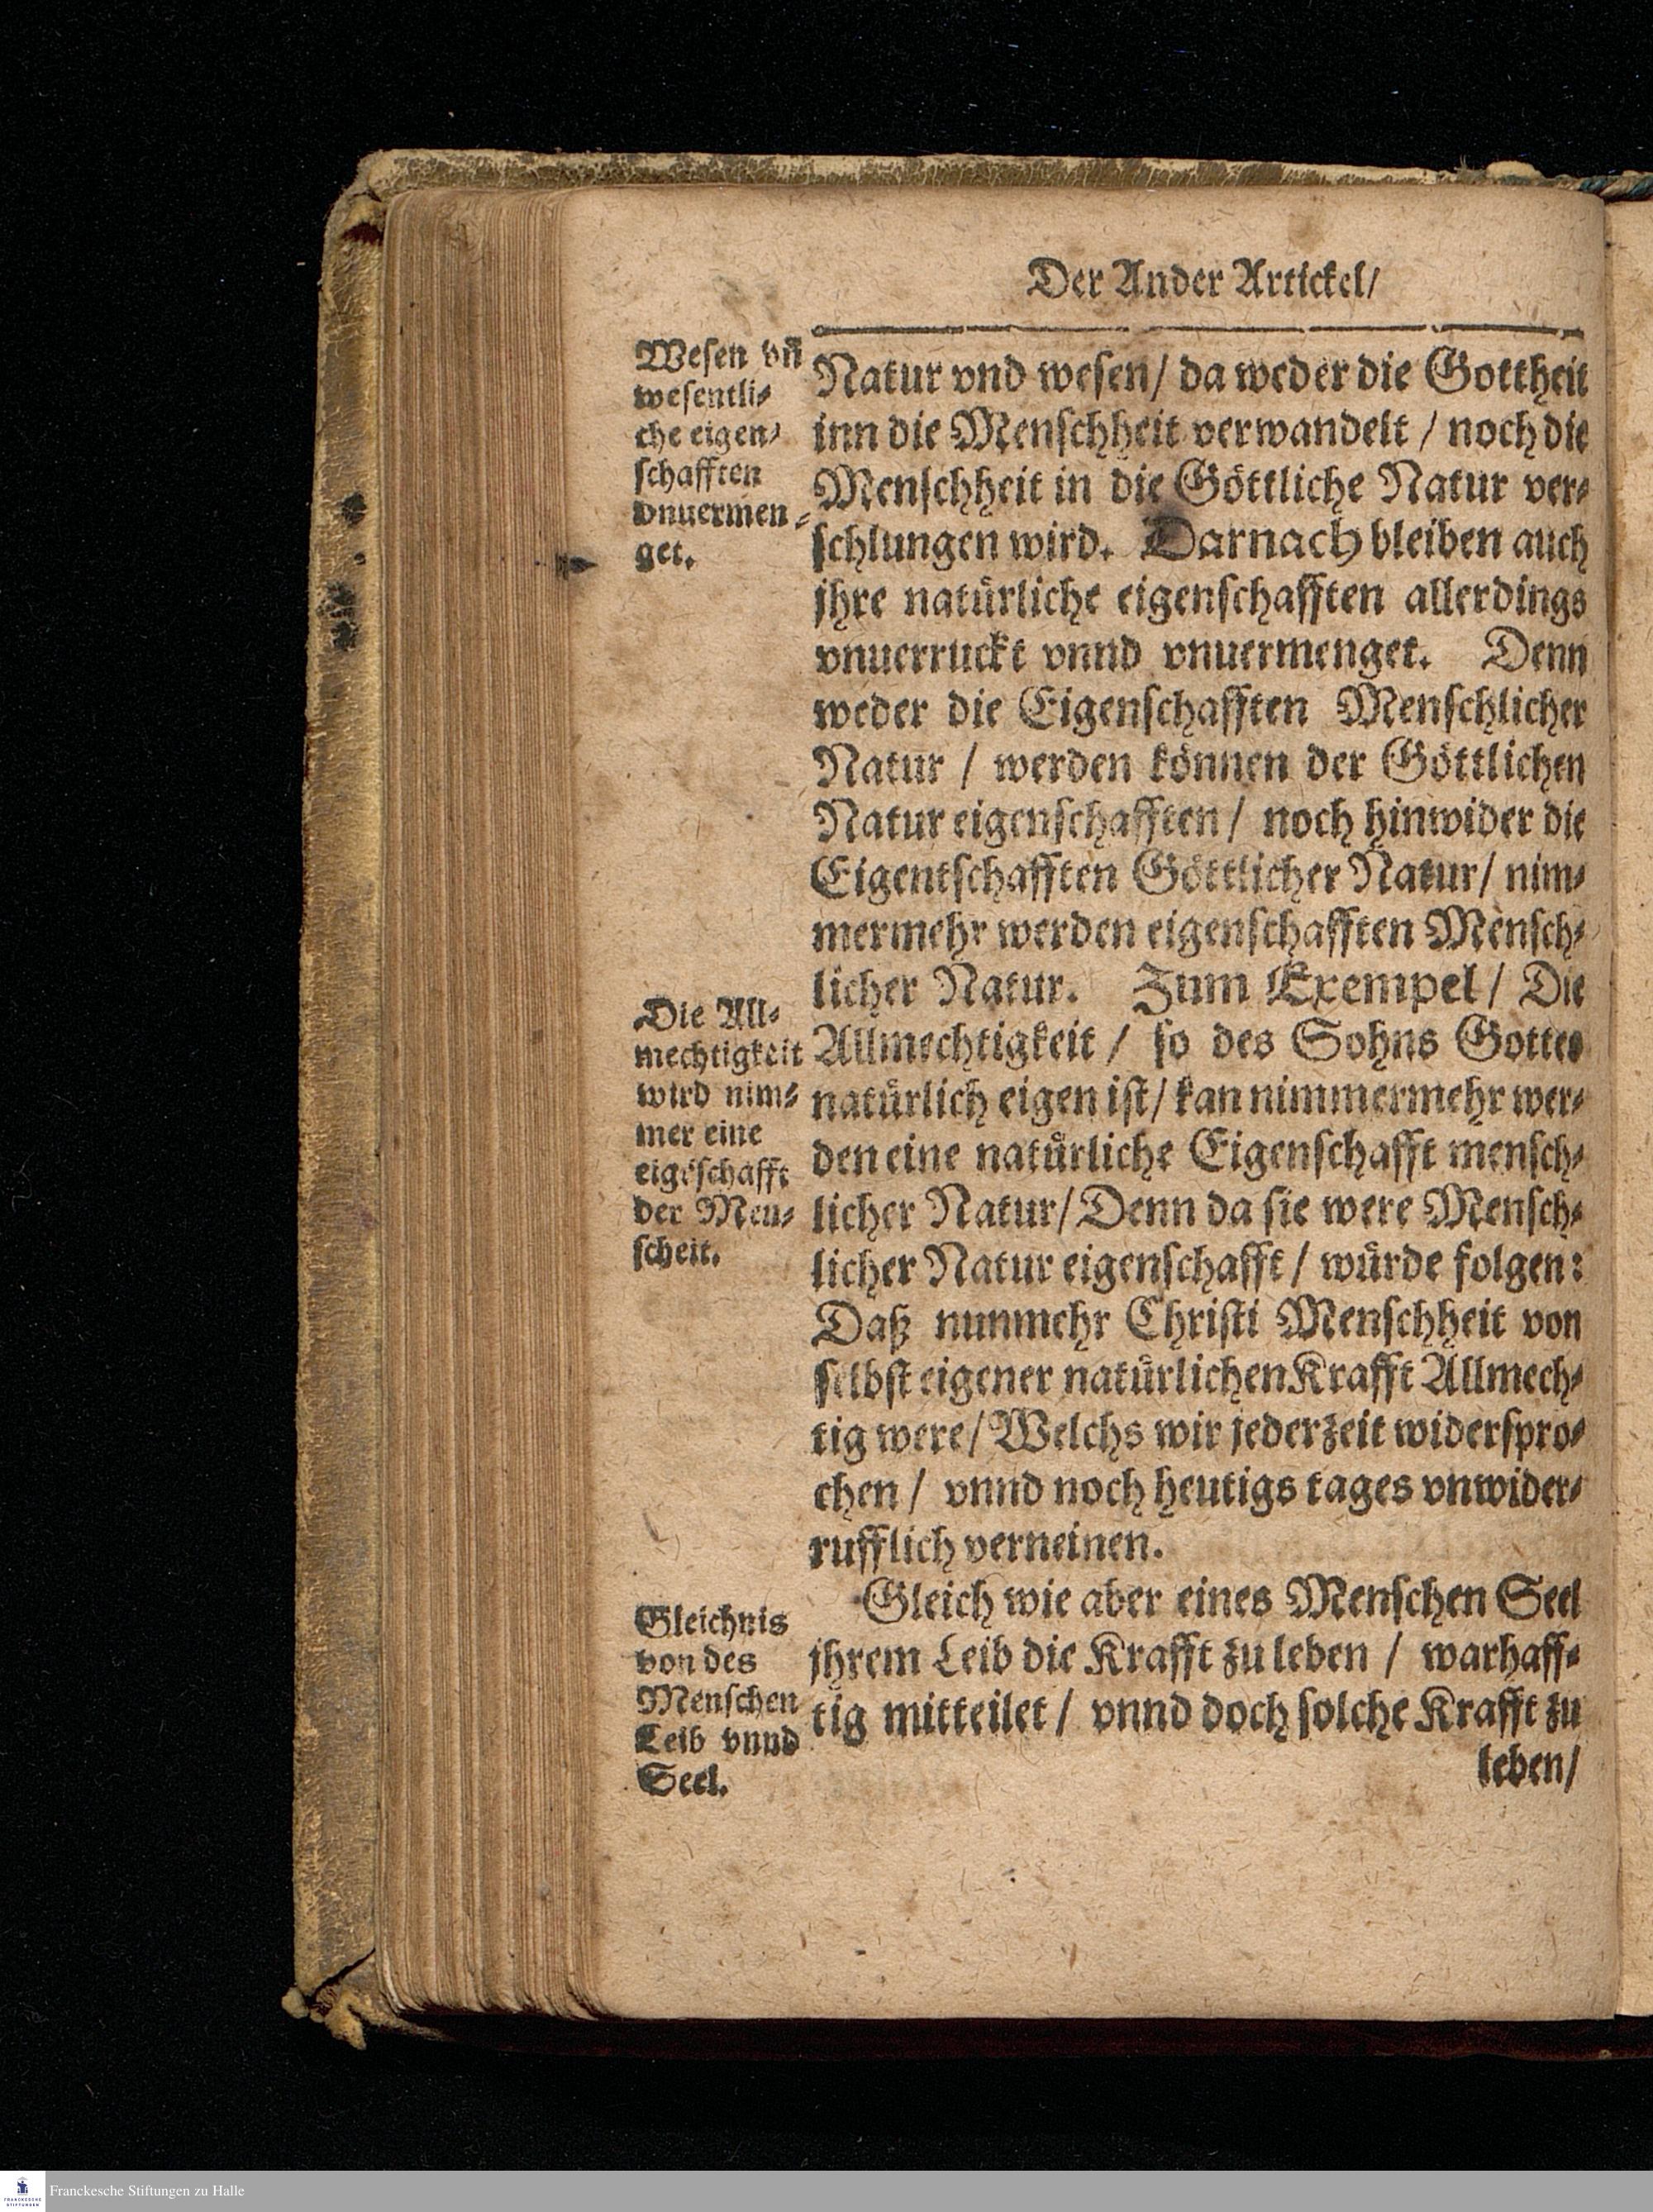 Der Ander Artickel/
Wesen vn̄
wesentli⸗
che eigen⸗
schafften
vnuermen⸗
get.
Natur vnd wesen/ da weder die Gottheit
inn die Menschheit verwandelt / noch die
Menschheit in die Göttliche Natur ver⸗
schlungen wird. Darnach bleiben auch
jhre natürliche eigenschafften allerdings
vnuerruckt vnnd vnuermenget. Denn
weder die Eigenschafften Menschlicher
Natur / werden können der Göttlichen
Natur eigenschafften/ noch hinwider die
Eigentschafften Göttlicher Natur/ nim⸗
mermehr werden eigenschafften Mensch⸗
licher Natur. Zum Exempel/ Die
Allmechtigkeit / so des Sohns Gottes
natürlich eigen ist/ kan nimmermehr wer⸗
den eine natürliche Eigenschafft mensch⸗
licher Natur/ Denn da sie were Mensch⸗
licher Natur eigenschafft / würde folgen:
Daß nunmehr Christi Menschheit von
selbst eigener natürlichen Krafft Allmech⸗
tig were/ Welchs wir jederzeit widerspro⸗
chen / vnnd noch heutigs tages vnwider⸗
rufflich verneinen.
Die All⸗
mechtigkeit
wird nim⸗
mer eine
eigēschafft
der Men⸗
scheit.
Gleich wie aber eines Menschen Seel
jhrem Leib die Krafft zu leben / warhaff⸗
tig mitteilet / vnnd doch solche Krafft zu
leben/
Gleichnis
von des
Menschen
Leib vnnd
Seel.
FRANCKESCHE
STIFTUNGEN
Franckesche Stiftungen zu Halle